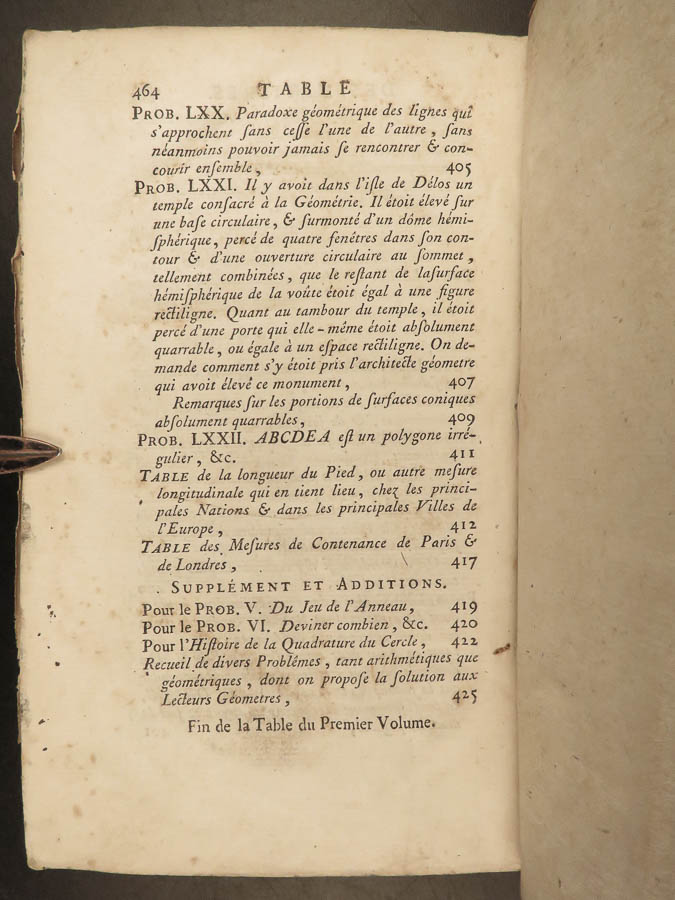 464 TABLE
PROB. LXX. Paradoxe géométrique des lignes qui
s'approchent ſans ceſſe l'une de l'autre, ſans
néanmoins pouvoir jamais ſe rencontrer & con-
courir enſemble, 405
PROB. LXXI. Il y avoit dans l'iſle de Délos un
temple conſacré à la Géométrie. Il étoit élevé ſur
une baſe circulaire, & ſurmonté d'un dôme hémi-
ſphérique, percé de quatre fenétres dans ſon con-
tour & d'une ouverture circulaire au ſommet,
tellement combinées, que le reſtant de laſurface
hémiſphérique de la voûte étoit égal à une figure
rectiligne. Quant au tambour du temple, il étoit
percé d'une porte qui elle-même étoit abſolument
quarrable, ou égale à un eſpace rectiligne. On de-
mande comment s'y étoit pris l'architecte géometre
qui avoit élevé ce monument, 407
Remarques ſur les portions de ſurfaces coniques
abſolument quarrables, 409
PROB. LXXII. ABCDEA eſt un polygone irré-
gulier, &c. 411
TABLE de la longueur du Pied, ou autre meſure
longitudinale qui en tient lieu, chez les princi-
pales Nations & dans les principales Villes de
l'Europe, 412
TABLE des Meſures de Contenance de Paris &
de Londres, 417
SUPPLÉMENT ET ADDITIONS.
Pour le PROB. V. Du Jeu de l'Anneau, 419
Pour le PROB. VI. Deviner combien, &c. 420
Pour l'Hiſtoire de la Quadrature du Cercle, 422
Recueil de divers Problêmes, tant arithmétiques que
géométriques, dont on propoſe la ſolution aux
Lecteurs Géometres, 425
Fin de la Table du Premier Volume.